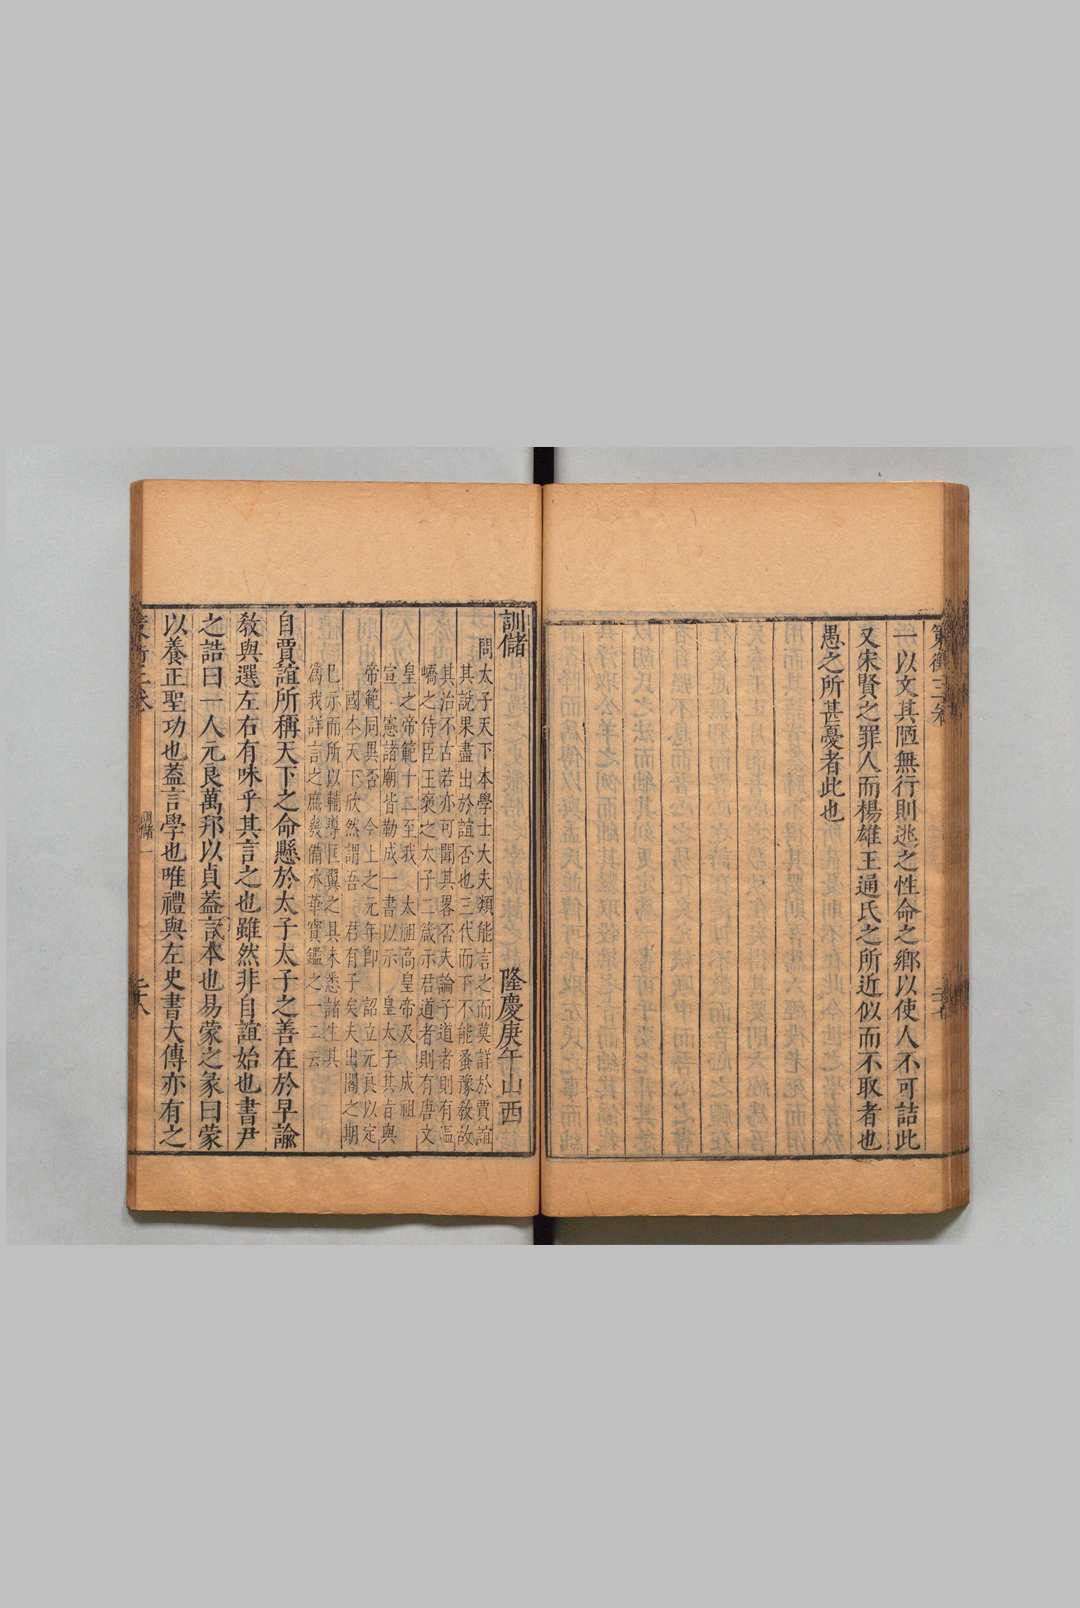 一以文其陋無行則逃之性命之鄉以使人不可詰此
又宋賢之罪人而楊雄王通氏之所近似而不取者也
愚之所甚憂者此也
訓儲 隆慶庚午山西
問太子天下本學士大夫類能言之而莫詳於賈誼
其說果盡出於誼否也三代而下不能蚤豫教故
其治不古若亦可聞其畧否夫論子道者則有溫
嶠之侍臣王褒之太子二箴示君道者則有唐文
皇之帝範十二至我 太祖高皇帝及 成祖
宣 憲諸廟皆勒成一書以示 皇太子其旨與
帝範同異否 今上之元年卽 詔立元良以定
國本天下欣然謂吾 君有子矣夫出閣之期
已示而所以輔導匡翼之具未悉諸生其
爲我詳言之庶幾備承華寶鑑之一二云
自賈誼所稱天下之命懸於太子太子之善在於早諭
教與選左右有味乎其言之也雖然非自誼始也書尹
之誥曰一人元良萬邦以貞蓋言本也易蒙之彖曰蒙
以養正聖功也蓋言學也唯禮與左史書大傳亦有之
訓儲一
二十八